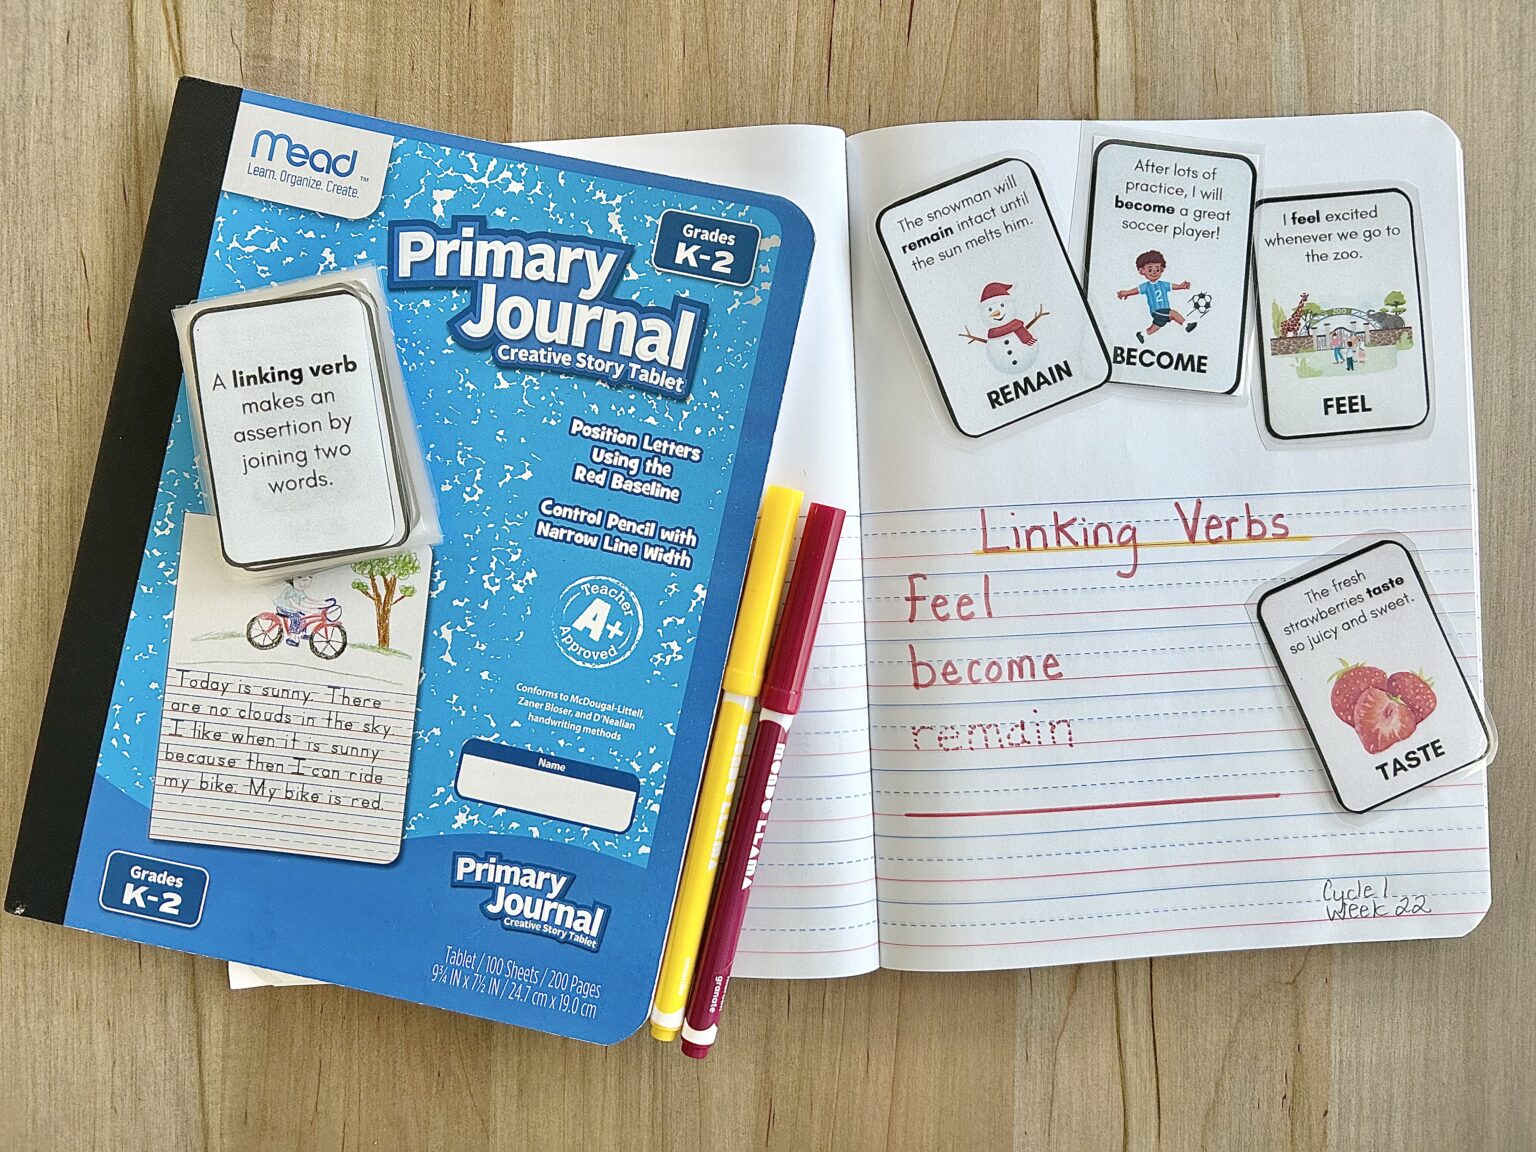 Mead™
Learn. Organize. Create.
Grades
K-2
Primary
Journal
Creative Story Tablet
Position Letters
Using the
Red Baseline
Control Pencil with
Narrow Line Width
Teacher
A+
Approved
Conforms to McDougal-Littell,
Zaner Bloser, and D'Nealian
handwriting methods
Name
A linking verb
makes an
assertion by
joining two
words.
Today is sunny. There
are no clouds in the sky.
I like when it is sunny
because then I can ride
my bike. My bike is red.
Grades
K-2
Primary
Journal
Creative Story Tablet
Tablet / 100 Sheets / 200 Pages
9¾ IN x 7½ IN / 24.7 cm x 19.0 cm
granate
The snowman will
remain intact until
the sun melts him.
REMAIN
After lots of
practice, I will
become a great
soccer player!
2
BECOME
I feel excited
whenever we go to
the zoo.
ZOO
FEEL
Linking Verbs
feel
become
remain
The fresh
strawberries taste
so juicy and sweet.
TASTE
Cycle 1
Week 22